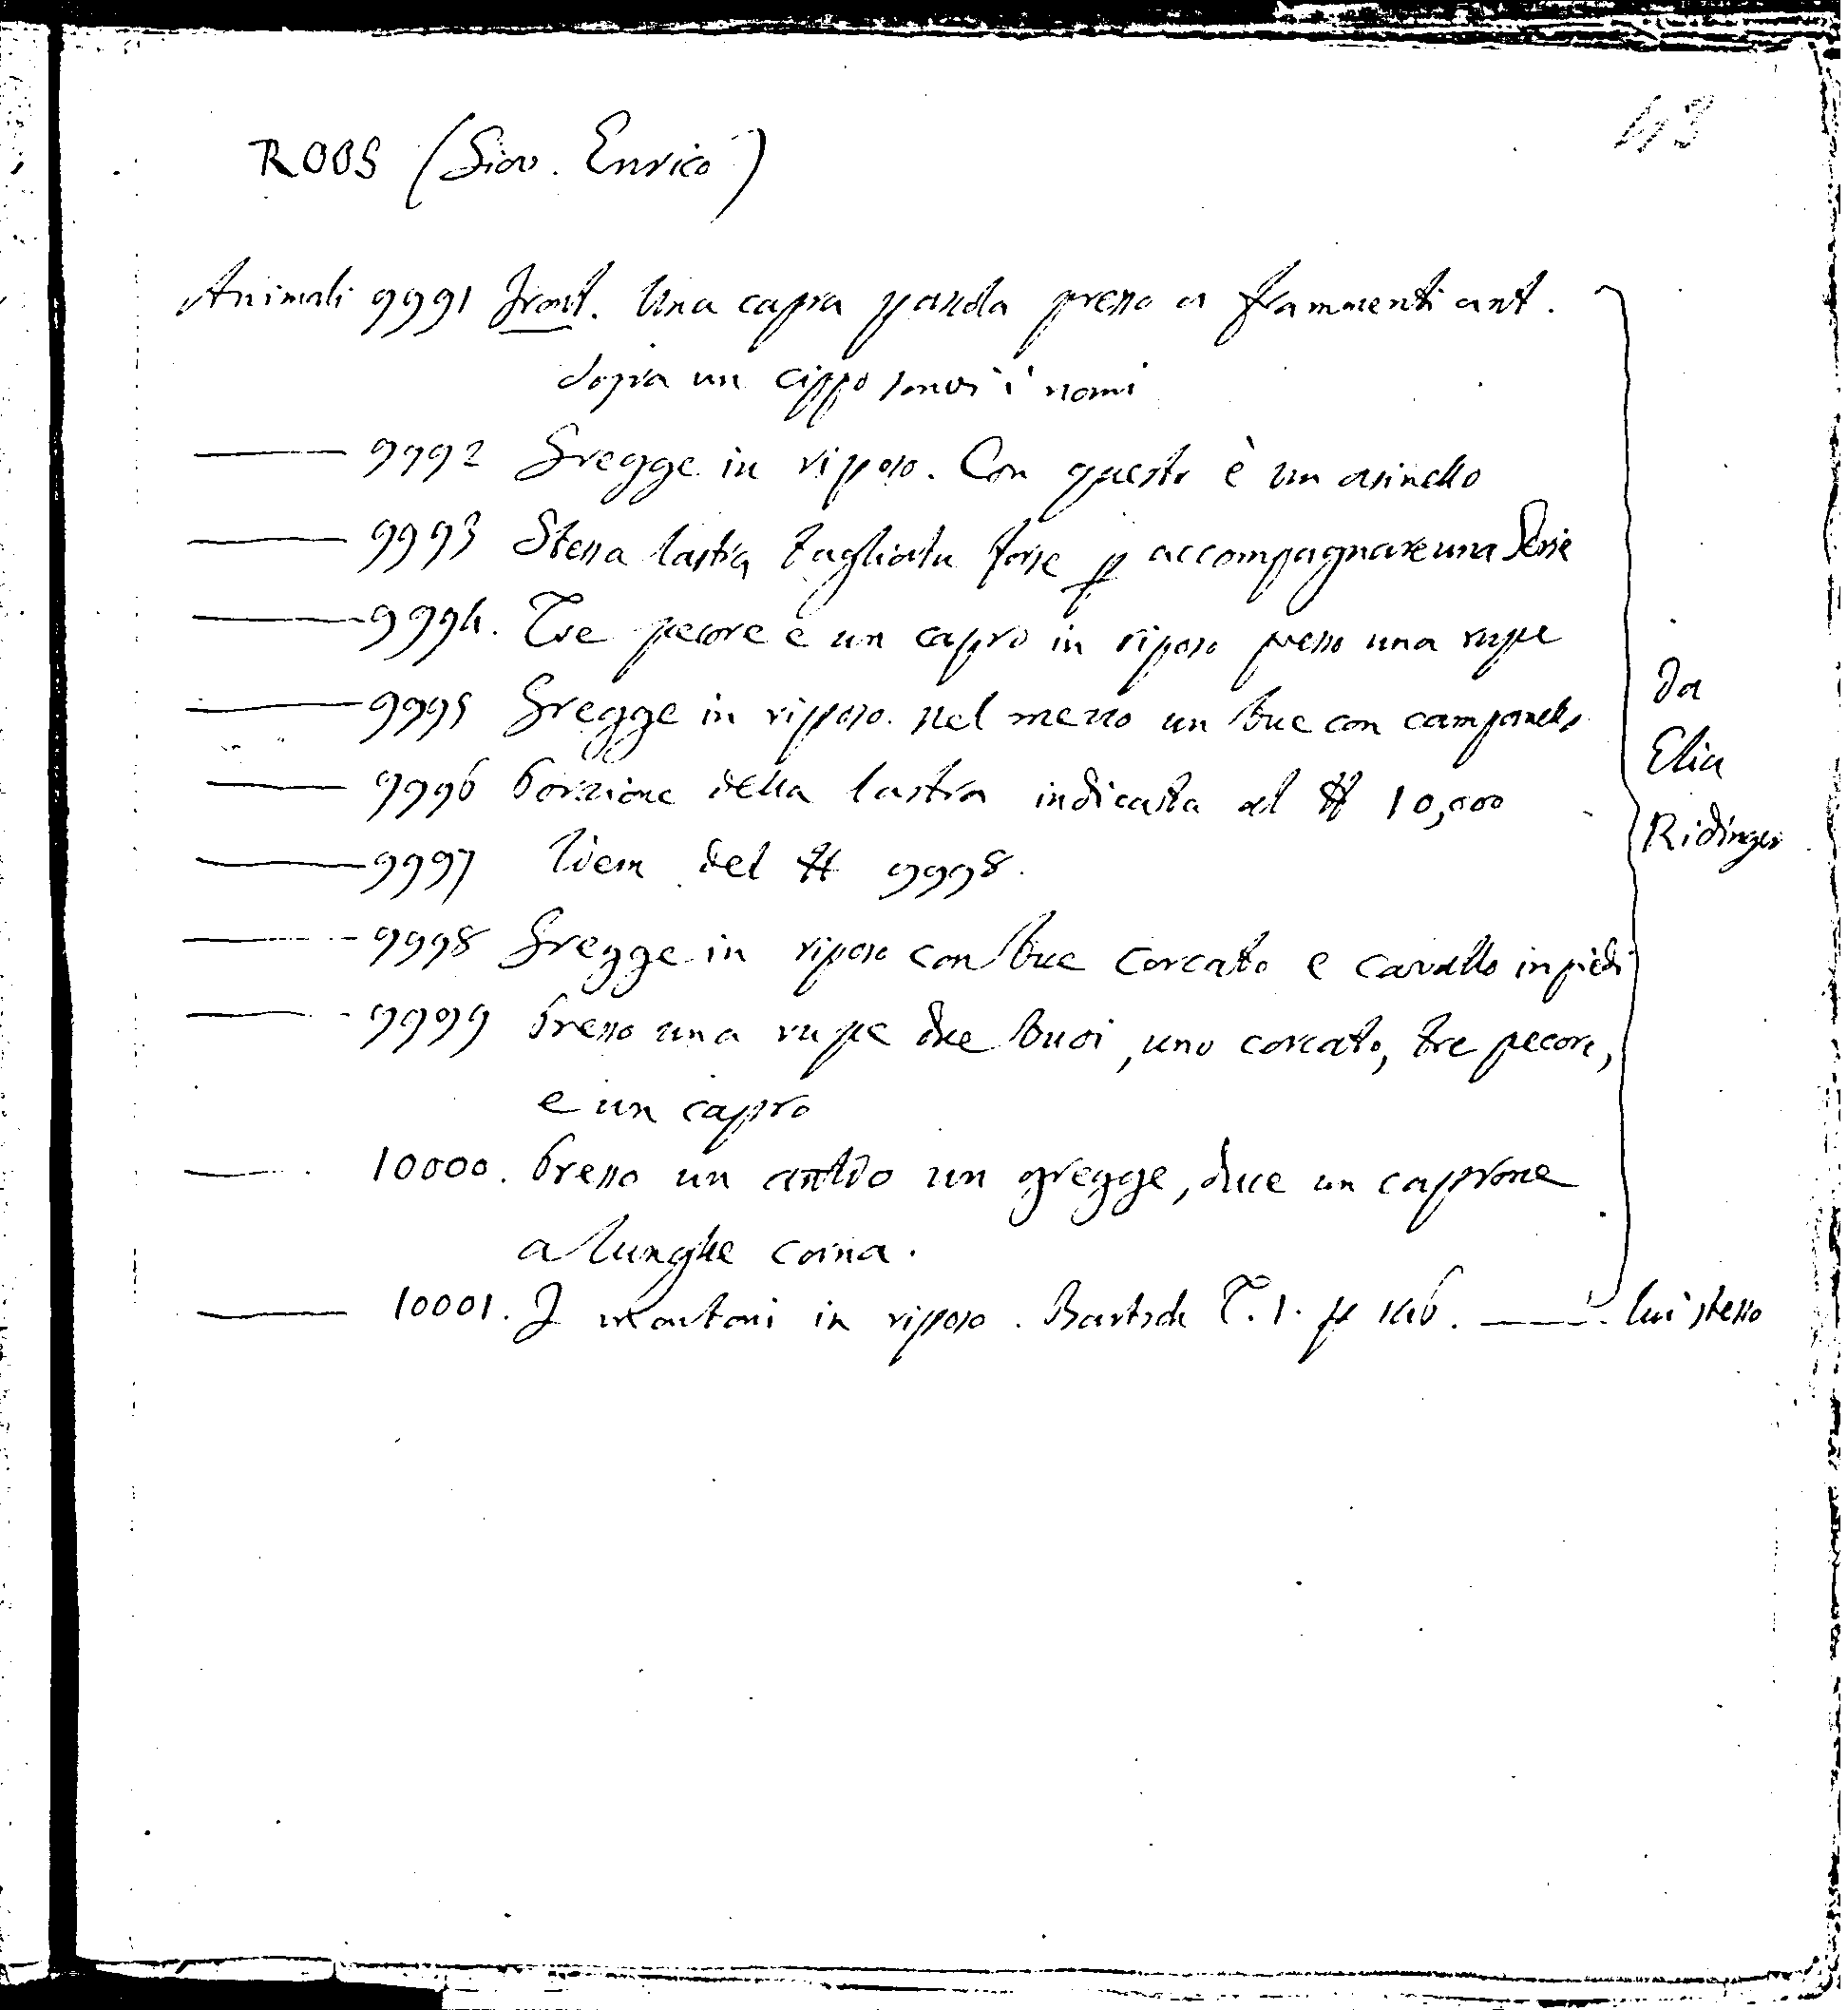 43
ROOS (Giov. Enrico)
Animali 9991 Front. Una capra gravida presso a frammenti ant.
sopra un cippo sonvi i nomi
——— 9992 Gregge in riposo. Con questo è un asinello
——— 9993 Stessa lastra tagliata forse p accompagnare una Serie
——— 9994. Tre pecore e un capro in riposo presso una rupe
——— 9995 Gregge in riposo. nel mezzo un bue con campanello
——— 9996 Porzione della lastra indicata al # 10,000
——— 9997 Idem del # 9998.
——— 9998 Gregge in riposo con bue corcato e cavallo in piedi
——— 9999 Presso una rupe due buoi, uno corcato, tre pecore,
e un capro
——— 10000. Presso un antro un gregge, duce un caprone
a lunghe corna.
da
Elia
Ridinger
——— 10001. 2 montoni in riposo. Bartsch T. 1. p ——— lui stesso